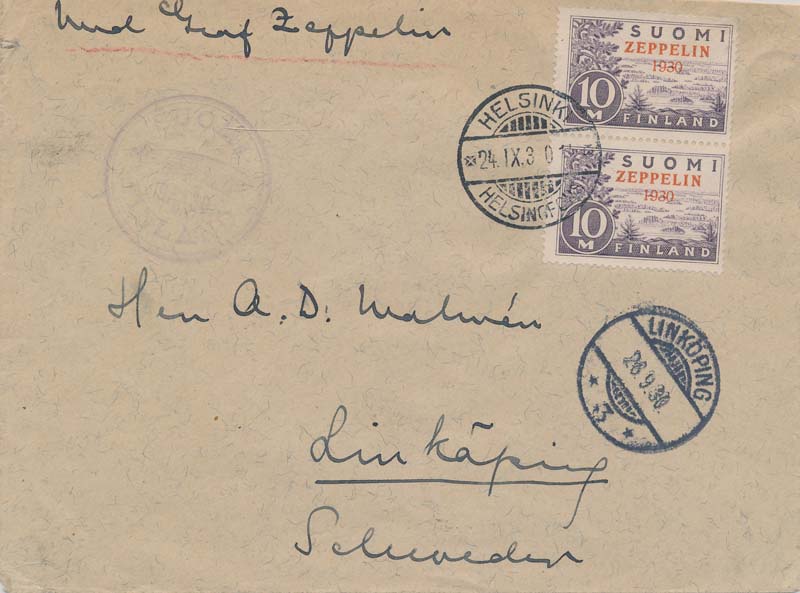 Graf Zeppelin
SUOMI
ZEPPELIN
1930
10 M
FINLAND
HELSINKI
24.IX.30
HELSINGFORS
SUOMI
ZEPPELIN
1930
10 M
FINLAND
Herr A. D. Malmén
LINKÖPING
26.9.30.
* 3 *
Linköping
Schweden